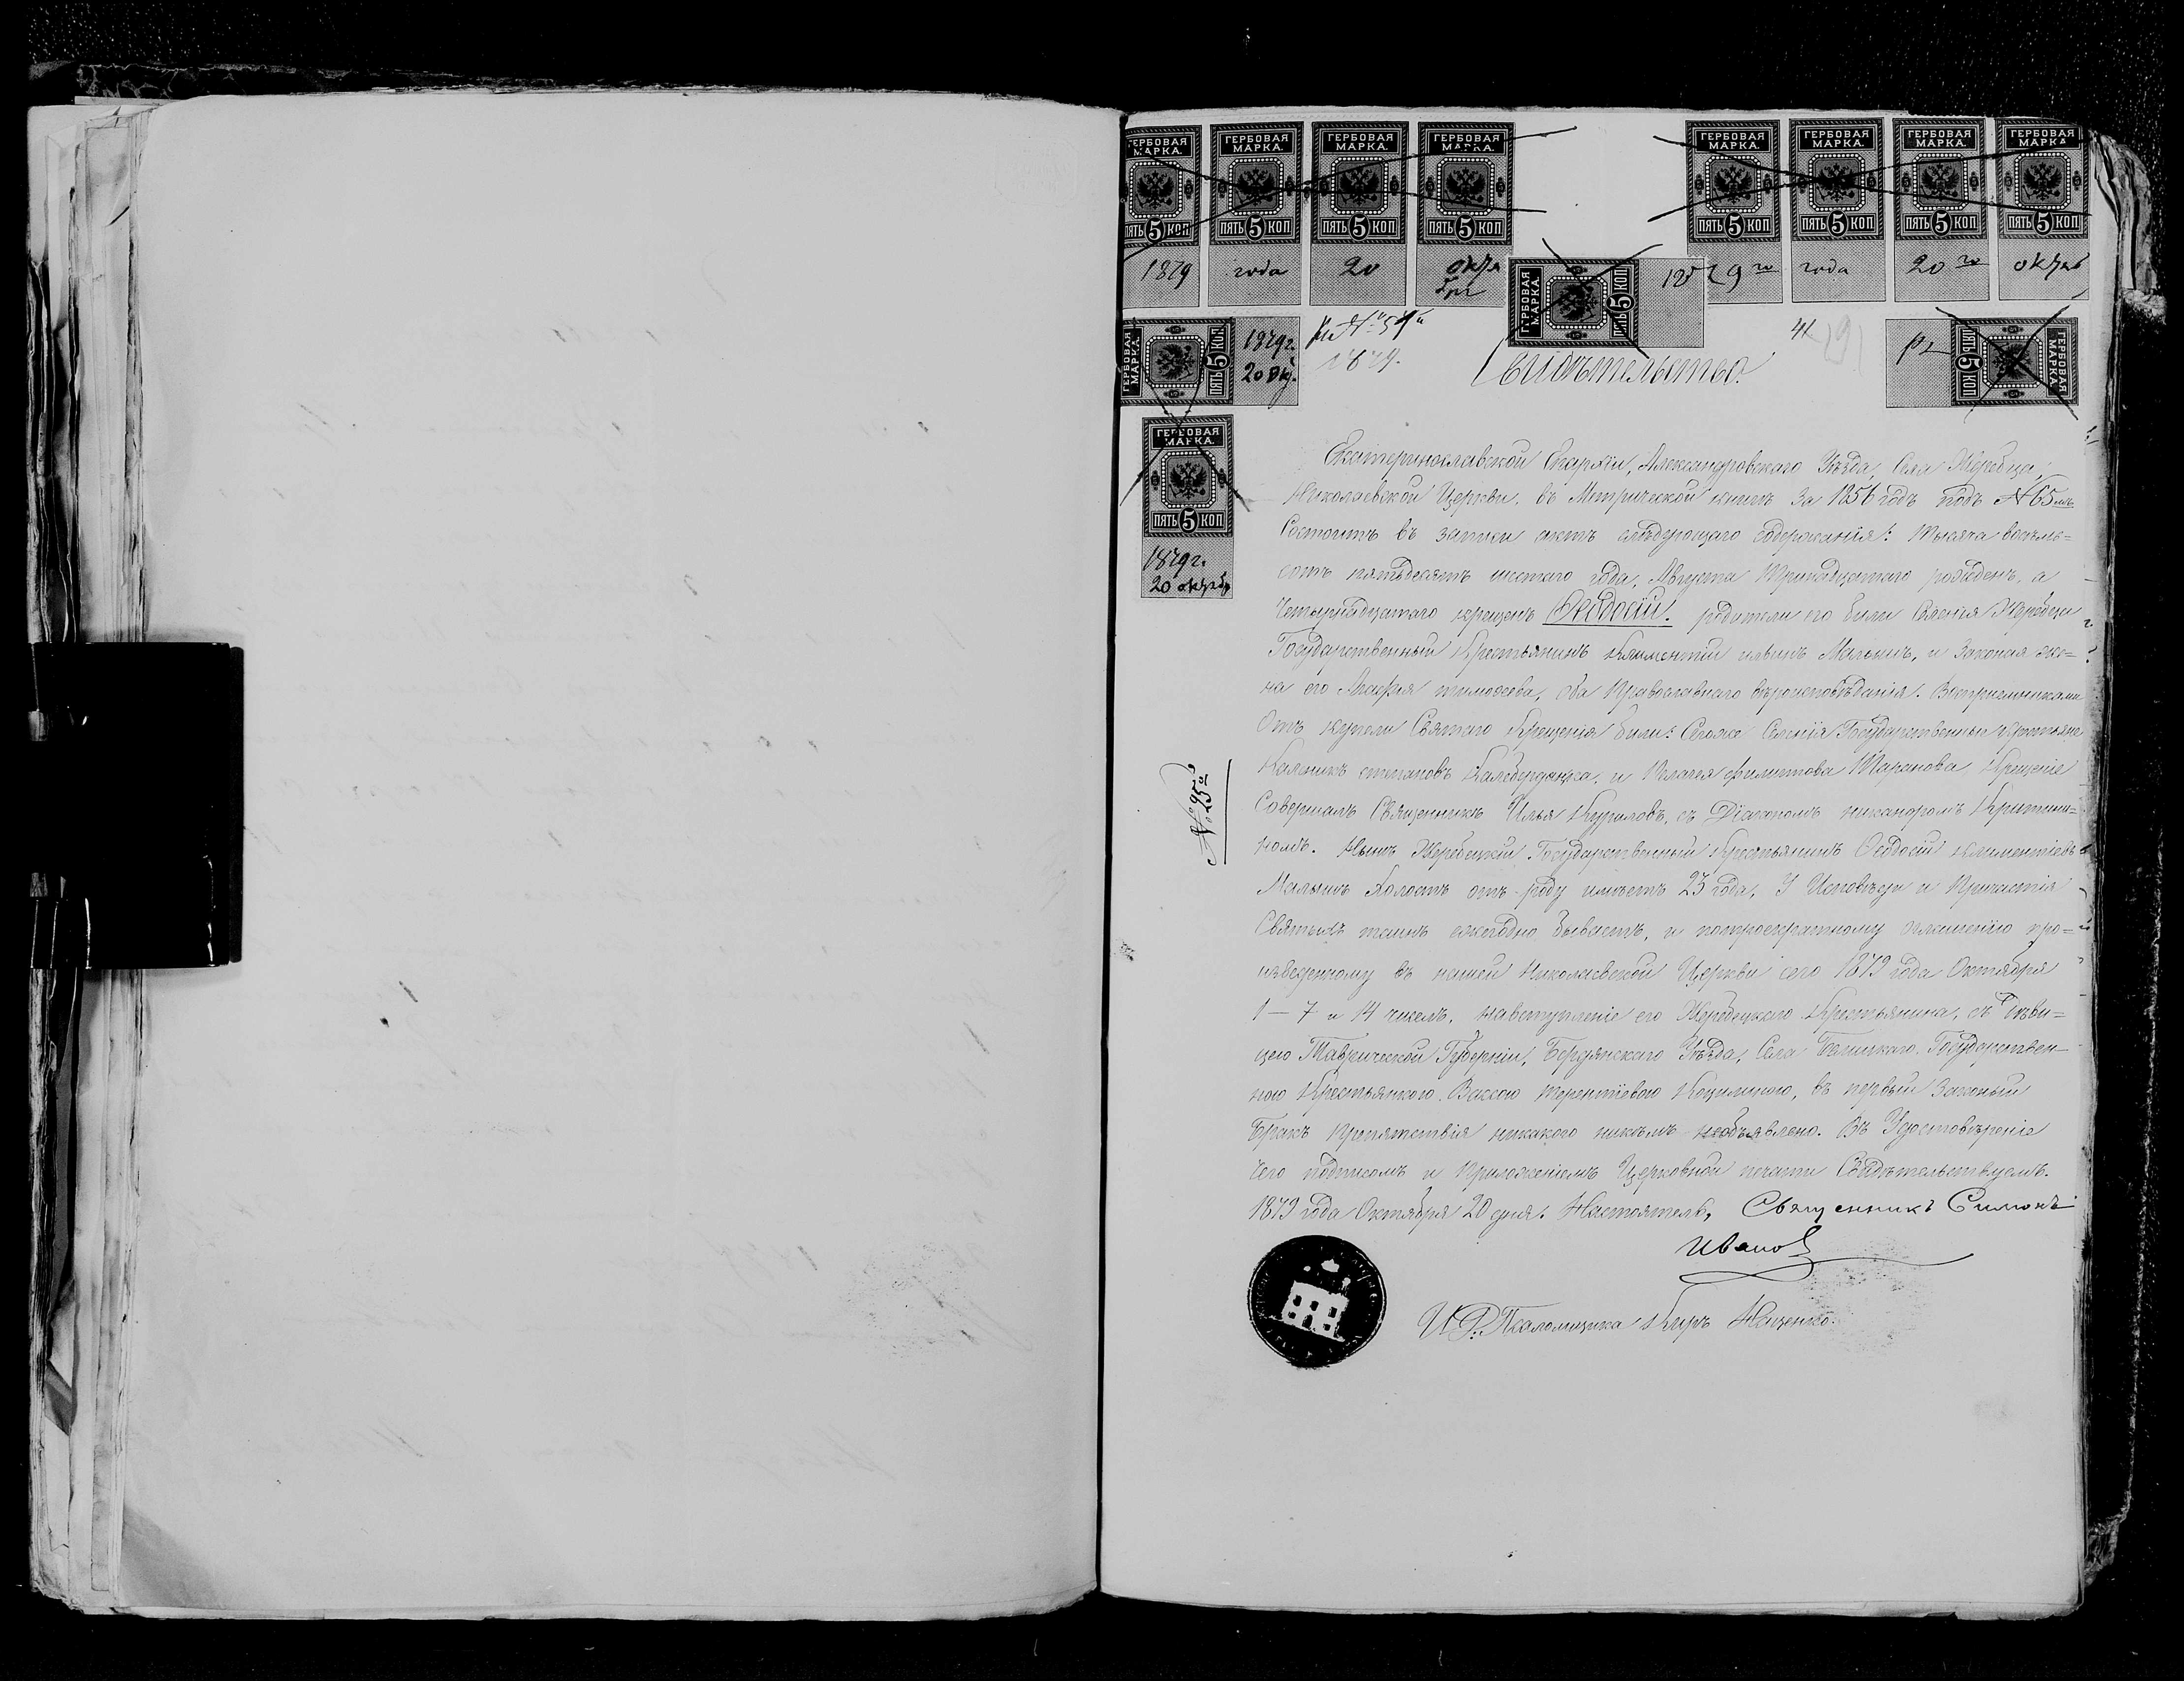 ГЕРБОВАЯ МАРКА. ПЯТЬ 5 КОП
ГЕРБОВАЯ МАРКА. ПЯТЬ 5 КОП
ГЕРБОВАЯ МАРКА. ПЯТЬ 5 КОП
ГЕРБОВАЯ МАРКА. ПЯТЬ 5 КОП
ГЕРБОВАЯ МАРКА. ПЯТЬ 5 КОП
ГЕРБОВАЯ МАРКА. ПЯТЬ 5 КОП
ГЕРБОВАЯ МАРКА. ПЯТЬ 5 КОП
ГЕРБОВАЯ МАРКА ПЯТЬ 5 КОП
1879 года 20 октября
1879го года 20го октяб
ГЕРБОВАЯ МАРКА. ПЯТЬ 5 КОП
ГЕРБОВАЯ МАРКА. ПЯТЬ 5 КОП
1879г.
20 Ок.
1879.
41
ГЕРБОВАЯ МАРКА. ПЯТЬ 5 КОП
Свидѣтельство.
ГЕРБОВАЯ МАРКА. ПЯТЬ 5 КОП
1879г.
20 октября
Екатеринославской Епархіи, Александровскаго Уѣзда, Села Жеребца,
Николаевской Церкви, въ Метрической книгѣ за 1856 годъ подъ №65мъ
Состоитъ въ записи актъ слѣдующаго содержанія: Тысяча восемь=
сотъ пятьдесятъ шестаго года, Августа Тринадцатаго рожденъ, а
Четырнадцатаго крещенъ Ѳеодосій. родители его были Селенія Жеребца
Государственный Крестьянинъ Климентій ильинъ Малышъ, и Законая же=
на его Агафія тимофеева, оба Православнаго вѣроисповѣданія. Воспріемниками
Отъ купели Святаго Крещенія были: Сегоже Селенія Государственные крестьяне
Калникъ степановъ Калебердинка, и Пелагея филиппова Таранова Крещеніе
Совершалъ Священникъ Илья Куриловъ, съ Діакономъ никандромъ
номъ. Нынѣ Жеребецкій Государственный Крестьянинъ Ѳеодосій климентіевъ
Малышъ Холостъ отъ роду имѣетъ 23 года, У Исповѣди и Причастія
Святыхъ таинъ ежегодно бываетъ, и потроекратному оглашенію про=
изведенному въ нашей Николаевской Церкви сего 1879 года Октября
1 — 7 и 14 чиселъ, навступленіе его Жеребецкаго Крестьянина, съ дѣви=
цею Таврической Губерніи, Бердянскаго Уѣзда, Села Государствен-
ною Крестьянкою Вассою терентіевою въ первый Законый
Бракъ Препятствія никакого никѣмъ необъявлено. Въ Удостовѣреніе
чего подписомъ и приложеніемъ Церковной печати Свидѣтельствуемъ.
1879 года Октября 20 дня. Настоятель, Священникъ Симонъ
Иванов
И. Д. Псаломщика Киръ Нещенко.